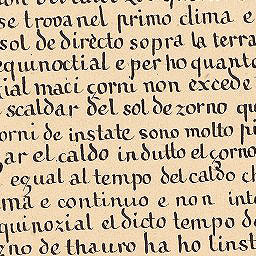 se trova nel primo clima e
sol de directo sopra la terra
equinoctial e per ho quanto
ial maci çorni non excede
scaldar del sol de zorno que
orni de instate sono molto pi
ar el caldo indutto el çorno
egual al tempo del caldo ch
ma e continuo e non inte
quinozial el dicto tempo de
eno de thauro ha ho linst